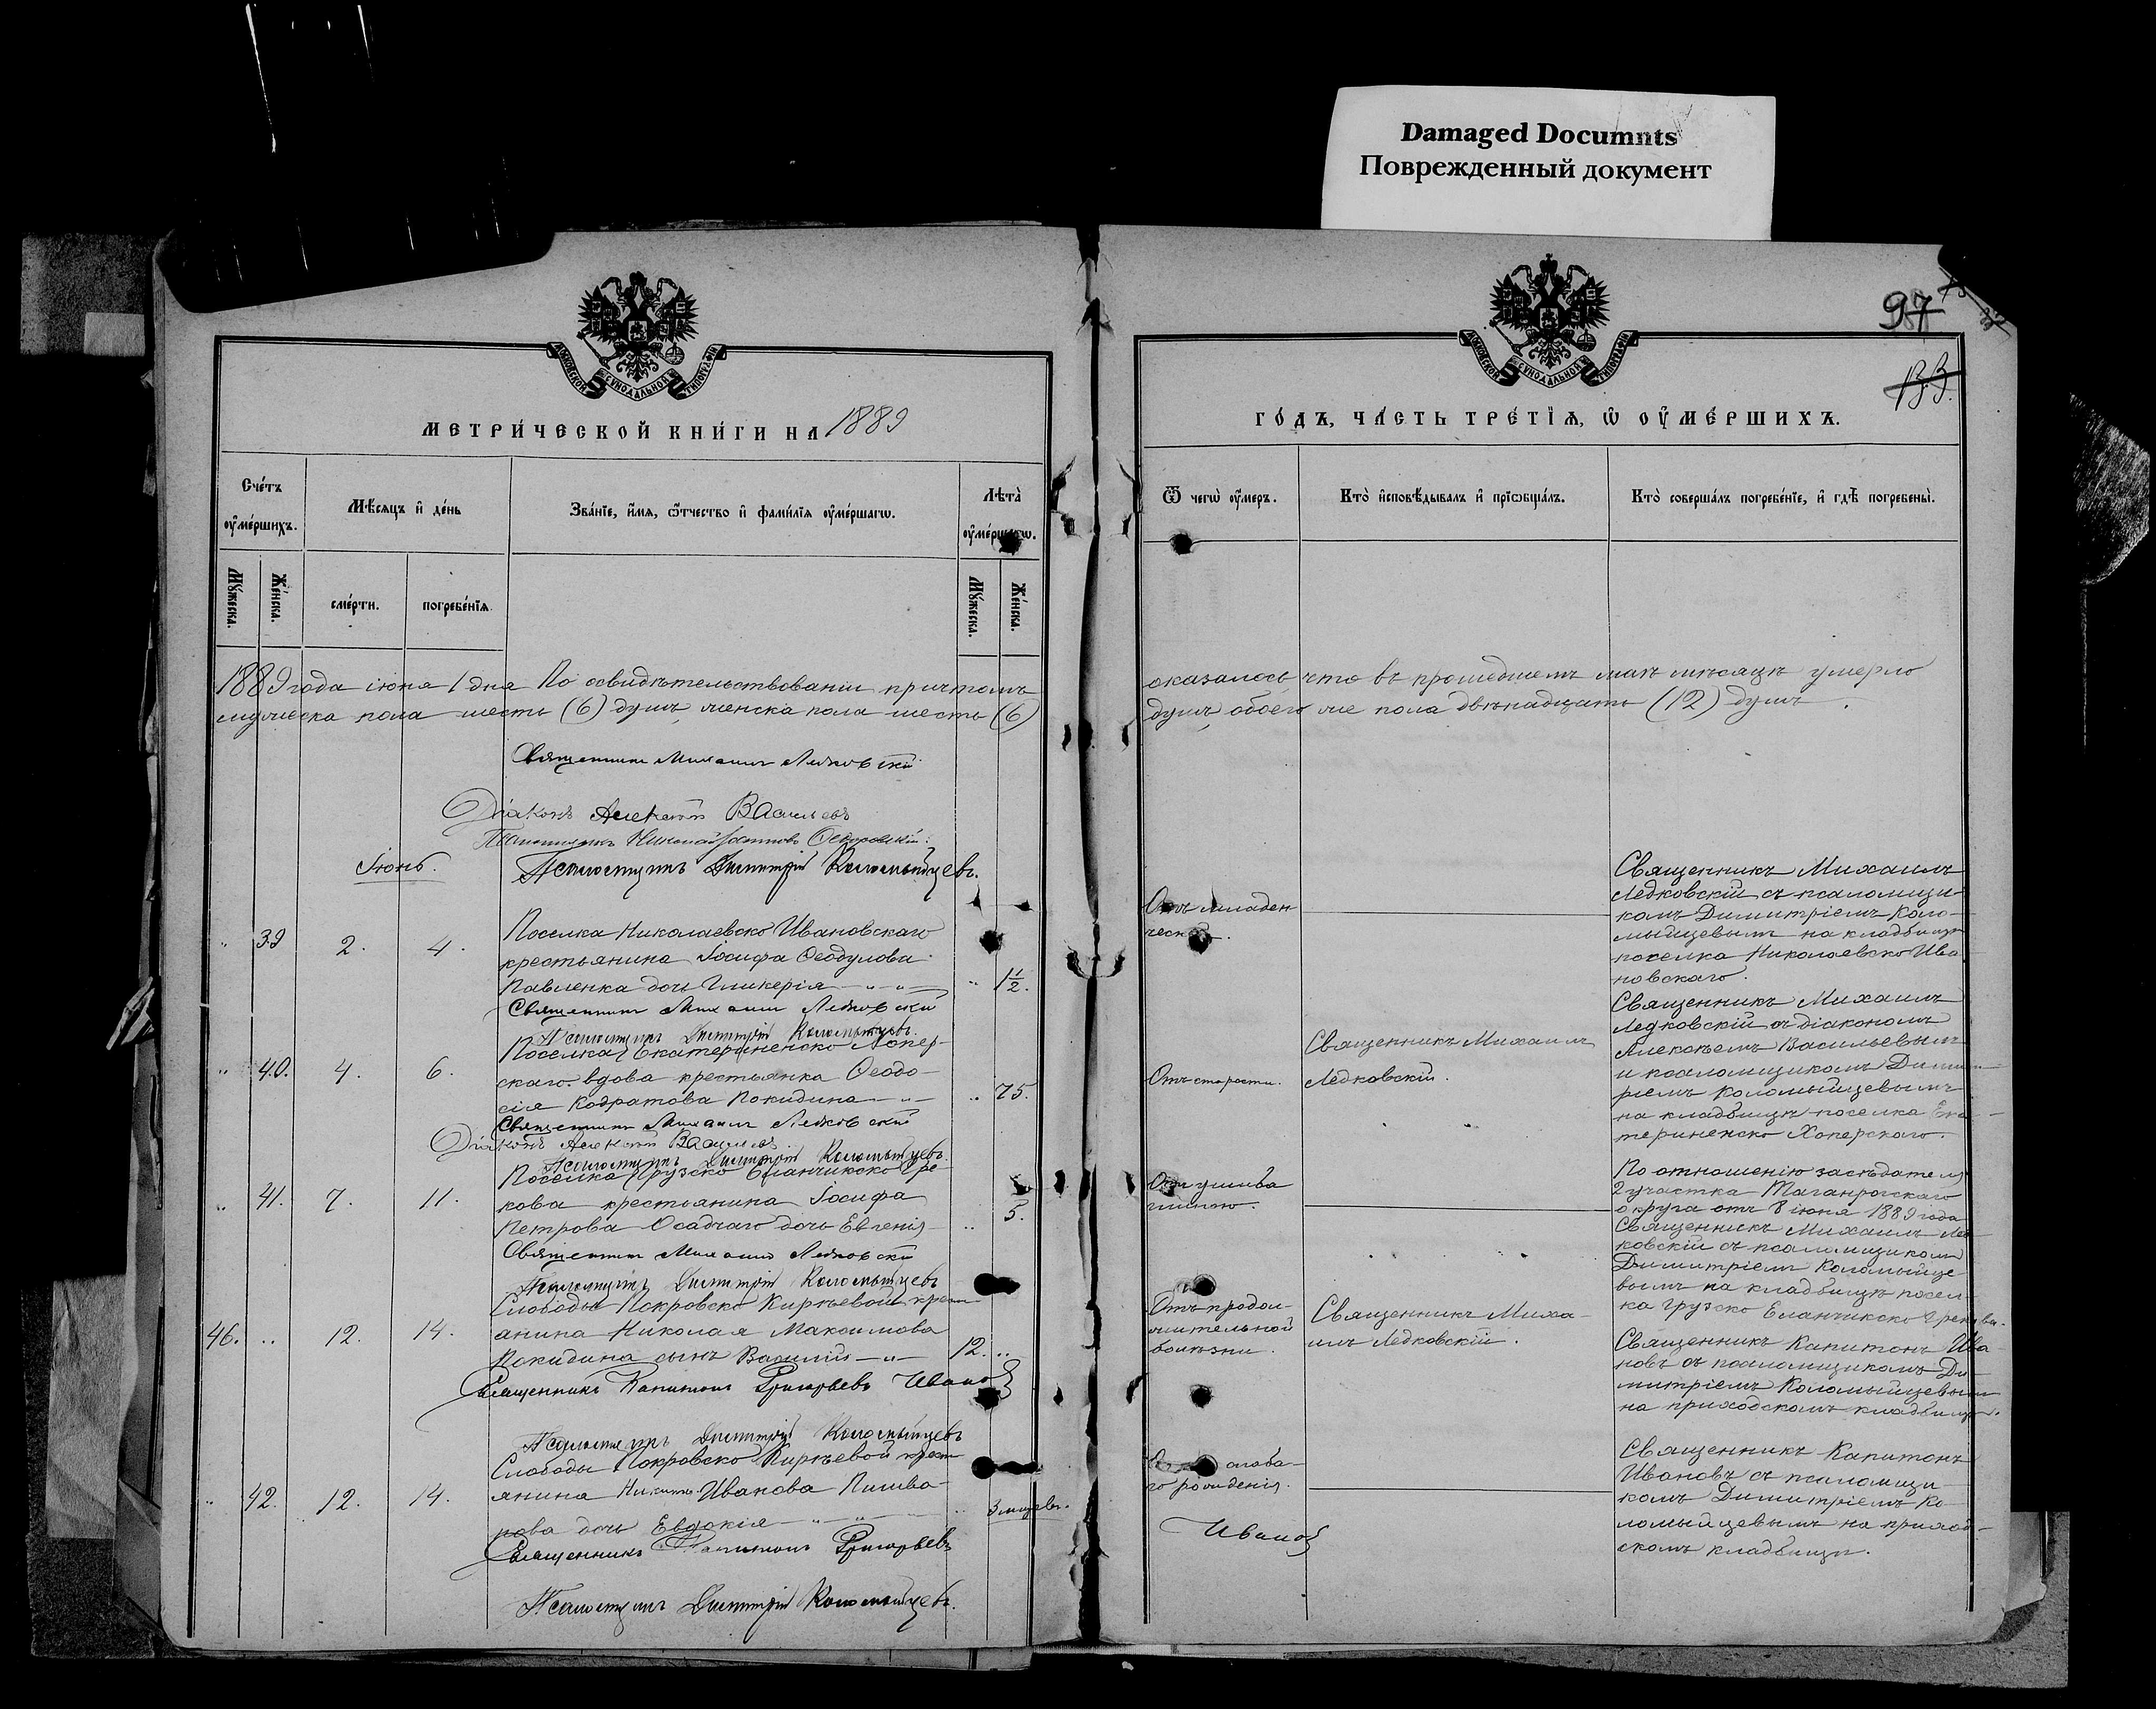 Damaged Documnts
Поврежденный документ
МОСКОВСКОЙ СѴНОДАЛЬНОЙ ТИПОГРАФІИ
МЕТРИ́ЧЕСКОЙ КНИ́ГИ НА 1889
Сче́тъ оу҆ме́ршихъ.
Мѣ́сяцъ и҆ де́нь
Зва́нїе, и҆́мѧ, ѻ҆́тчество и҆ фами́лїѧ оу҆ме́ршагѡ.
Лѣта̀ оу҆ме́ршагѡ.
Мꙋ́жеска.
Же́нска.
сме́рти.
погребе́нїѧ.
Мꙋ́жеска.
Же́нска.
1889 года іюня 1 дня По освидѣтельствованіи причтомъ
мужеска пола шесть (6) душъ женска пола шесть (6)
Священникъ Михаилъ Ледковскій
Діаконъ Алексѣй Васильевъ
Іюнь.
Псаломщикъ Димитрій Коломыйцевъ.
" 39 2. 4.
Поселка Николаевско Ивановскаго
крестьянина Іосифа Ѳеодулова
Павленка дочь Гликерія " 1½.
Священникъ Михаилъ Ледковскій
Псаломщикъ Димитрій Коломыйцевъ.
" 40. 4. 6.
Поселка Екатериненско Хопер-
скаго вдова крестьянка Ѳеодо-
сія Кодратова Покидина " 75.
Священникъ Михаилъ Ледковскій
Діаконъ Алексѣй Васильевъ
Псаломщикъ Димитрій Коломыйцевъ.
" 41. 7. 11.
Поселка Грузско Еланчикско Гре-
кова крестьянина Іосифа
Петрова Осадчаго дочь Евгенія " 5.
Священникъ Михаилъ Ледковскій
Псаломщикъ Димитрій Коломыйцевъ
46. " 12. 14.
Слободы Покровско Кирѣевой крест-
анина Николая Максимова
Покидина сынъ Василій 12. "
Священникъ Капитонъ Григорьевъ Ивановъ
Псаломщикъ Димитрій Коломыйцевъ
" 42. 12. 14.
Слободы Покровско Кирѣевой крест
янина Никиты Иванова Пиво-
рова дочь Евдокія " 3 мѣсяв.
Священникъ Капитонъ Григорьевъ
Псаломщикъ Димитрій Коломыйцевъ.
97
133.
МОСКОВСКОЙ СѴНОДАЛЬНОЙ ТИПОГРАФІИ
ГО́ДЪ, ЧА́СТЬ ТРЕ́ТЇѦ, Ѡ҆ ОУ҆МЕ́РШИХЪ.
Ѿ чегѡ̀ оу҆́меръ.
Кто̀ и҆сповѣ́дывалъ и҆ прїѡбща́лъ.
Кто̀ соверша́лъ погребе́нїе, и҆ гдѣ̀ погребены̀.
оказалось, что въ прошедшемъ маѣ мѣсяцѣ умерло
душъ обоего же пола двѣнадцать (12) душъ.
Отъ младен
ческой.
Священникъ Михаилъ
Ледковскій съ псаломщи-
комъ Димитріемъ Коло-
мыйцевымъ на кладбищѣ
поселка Николаевско Ива
новскаго.
Отъ старости.
Священникъ Михаилъ
Ледковскій.
Священникъ Михаилъ
Ледковскій съ діакономъ
Алексѣемъ Васильевымъ
и псаломщикомъ Димит-
ріемъ Коломыйцевымъ
на кладбищѣ поселка Ека-
териненско Хоперскаго.
Отъ ушиба
По отношенію засѣдателя
2 участка Таганрогскаго
округа отъ 8 іюня 1889 года
Священникъ Михаилъ Лед-
ковскій съ псаломщикомъ
Димитріемъ Коломыйце
вымъ на кладбищѣ посел-
ка Грузско Еланчикско Грекова.
Отъ продол-
жительной
болѣзни.
Священникъ Миха-
илъ Ледковскій.
Священникъ Капитонъ Ива
новъ съ псаломщикомъ Ди-
митріемъ Коломыйцевымъ
на приходскомъ кладбищѣ.
слаба-
го рожденія.
Ивановъ
Священникъ Капитонъ
Ивановъ съ псаломщи-
комъ Димитріемъ Ко-
ломыйцевымъ на приход-
скомъ кладбищѣ.